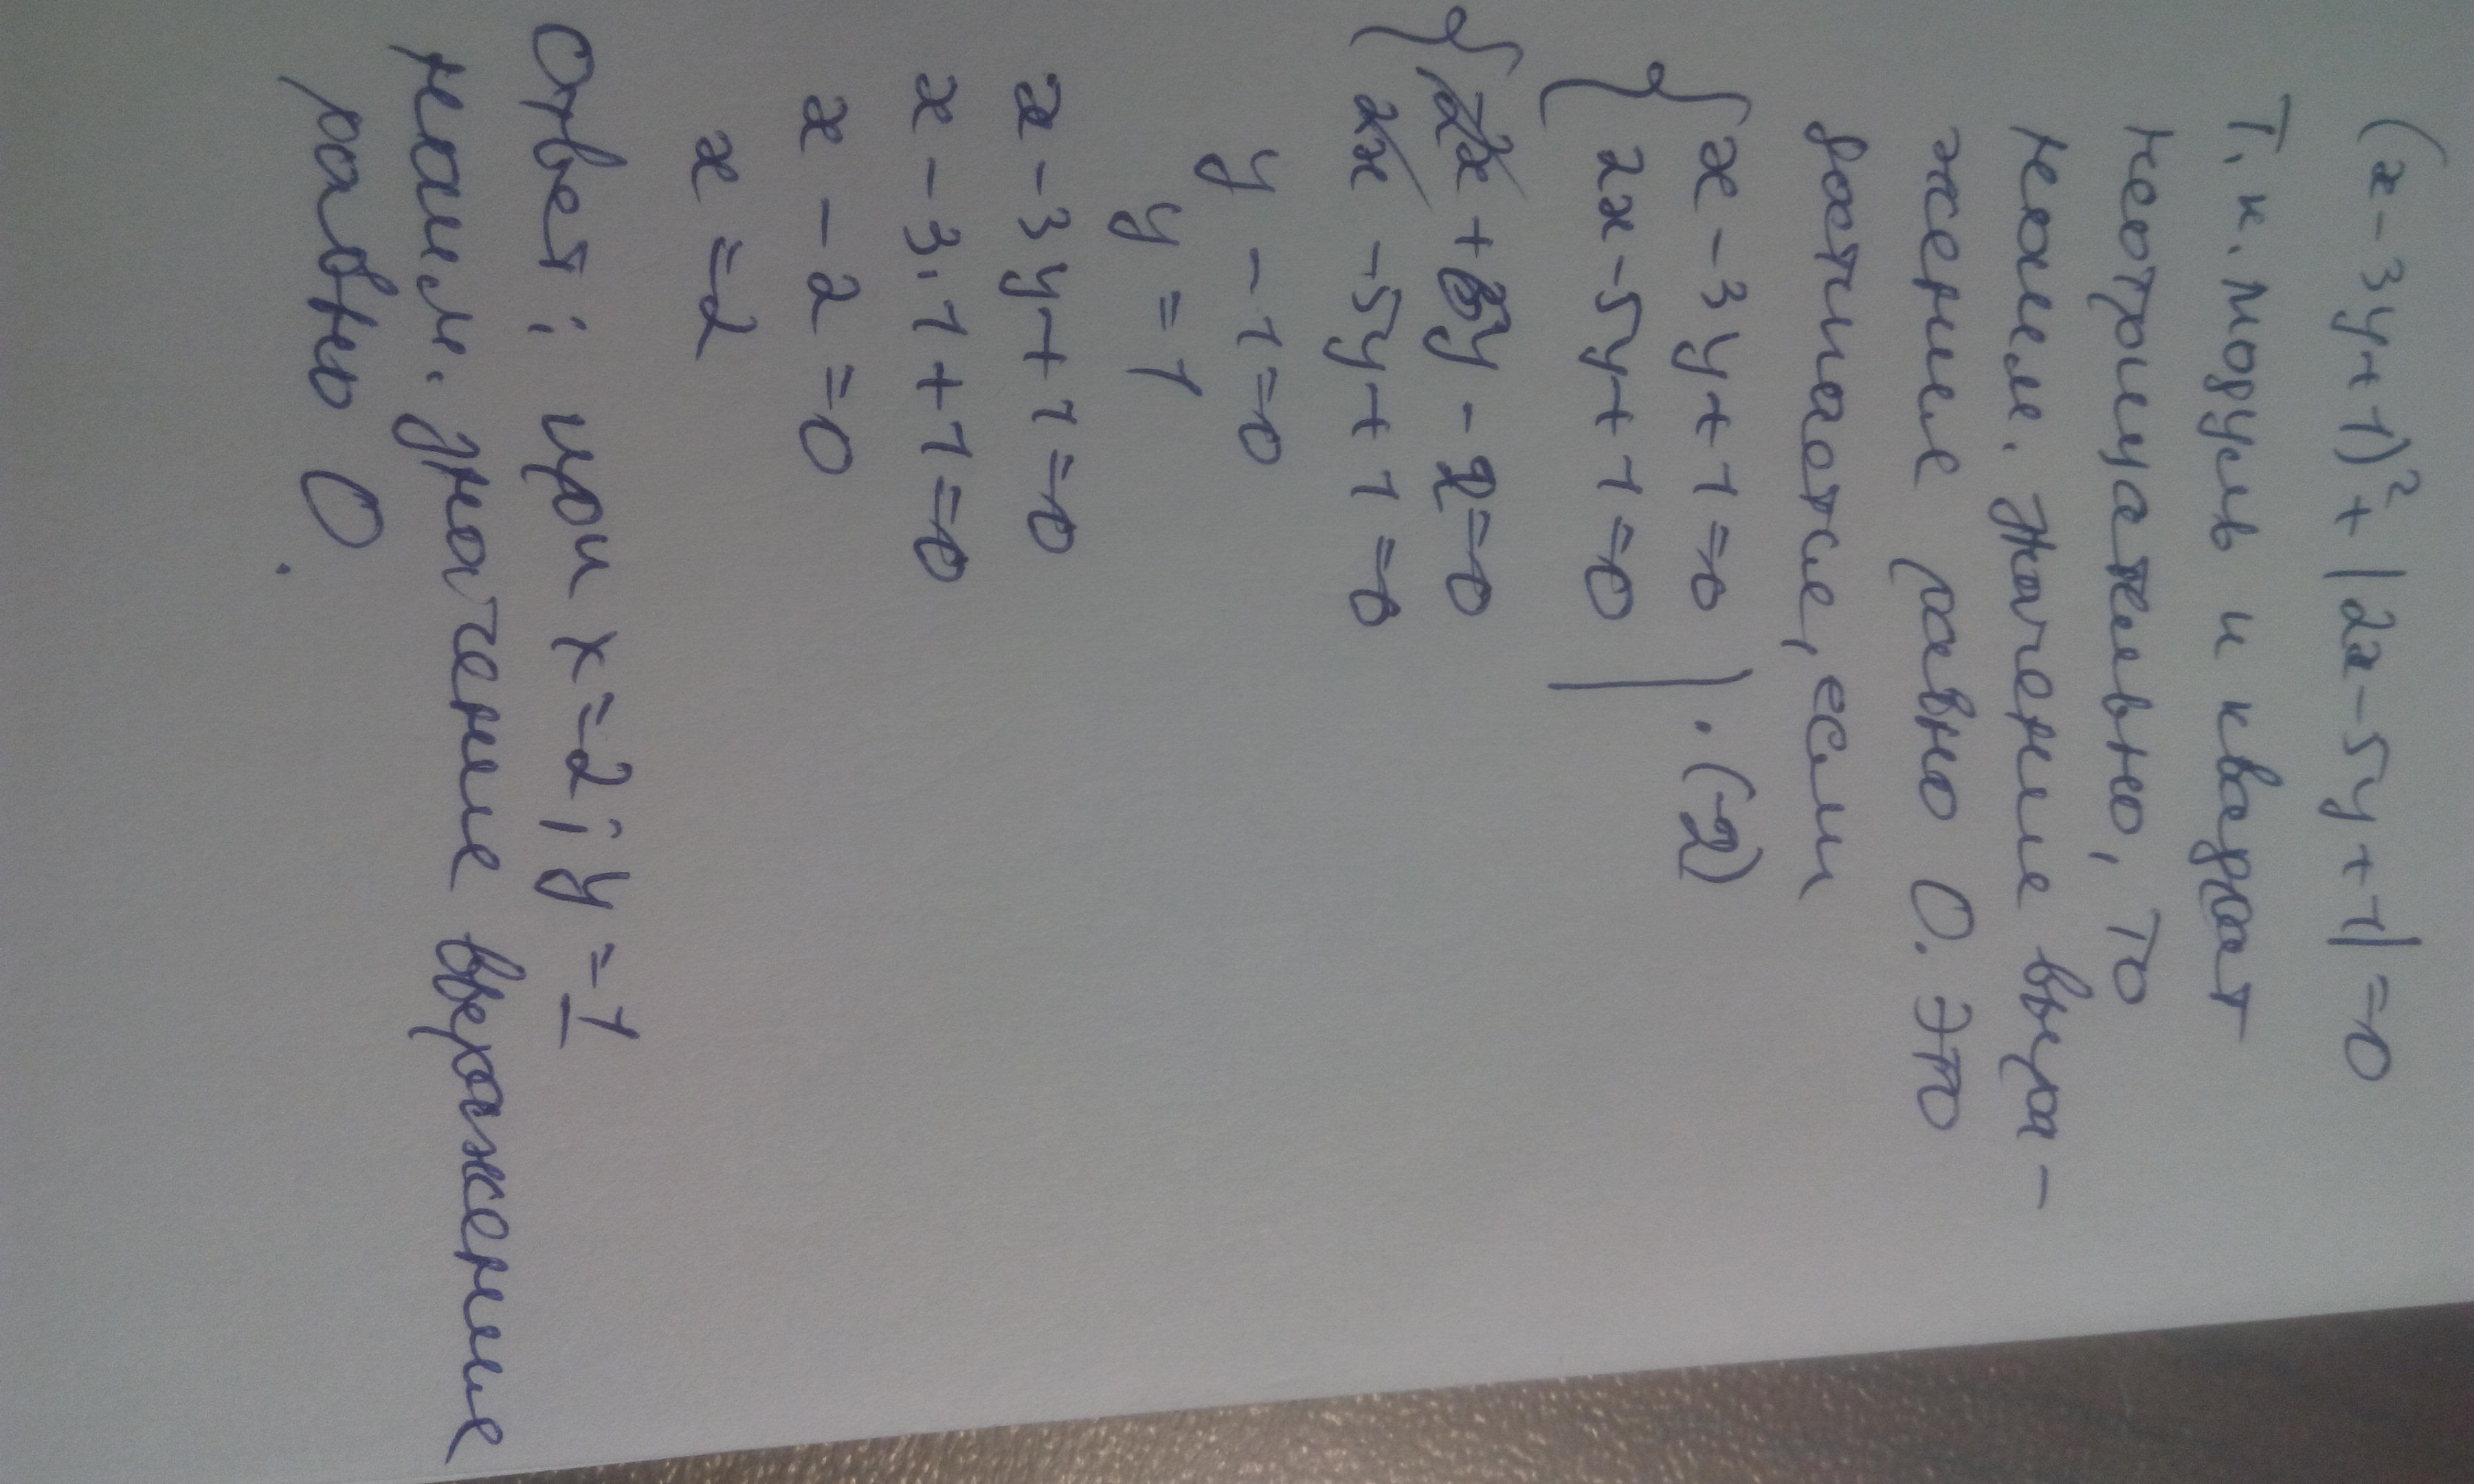 (x-3y+1)²+|2x-5y+1|=0
Т.к. модуль и квадрат
неотрицательно, то
наим. значение выра-
жения равно 0. Это
достигается, если
{ x-3y+1=0 | ·(-2)
2x-5y+1=0
{ -2x+6y-2=0
2x-5y+1=0
y-1=0
y=1
x-3y+1=0
x-3·1+1=0
x-2=0
x=2
Ответ: при x=2; y=1
наим. значение выражения
равно 0.